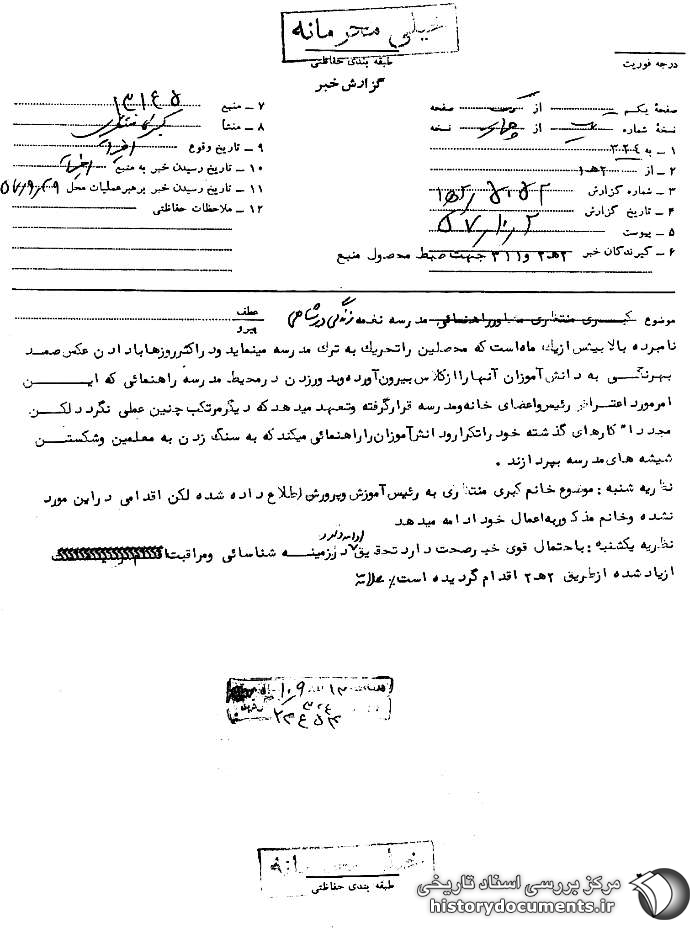 خیلی محرمانه
طبقه بندی حفاظتی
گزارش خبر
درجه فوریت
صفحهٔ یکم از یک صفحه
نسخهٔ شماره یک از چهار نسخه
۱ ـ به ۳۲۴
۲ ـ از ۲هـ۱
۳ ـ شماره گزارش
۴ ـ تاریخ گزارش
۵ ـ پیوست
۶ ـ گیرندگان خبر ۲هـ۲ و ۳۱۱ جهت ضبط محصول منبع
۷ ـ منبع
۸ ـ منشأ
۹ ـ تاریخ وقوع اخیراً
۱۰ ـ تاریخ رسیدن خبر به منبع اخیراً
۱۱ ـ تاریخ رسیدن خبر برهبر عملیات محل
۱۲ ـ ملاحظات حفاظتی
موضوع کبـری منتظری مشاور راهنمائی مدرسه نغمه زندگی
عطف
پیرو
نامبرده بالا بیش از یک ماه است که محصلین را تحریک به ترک مدرسه مینماید و در اکثر روزها با دادن عکس صمد
بهرنگی به دانش آموزان آنها را از کلاس بیرون آورده و بد ورزدن در محیط مدرسه راهنمائی که ایـــن
امر مورد اعتراض رئیس و اعضای خانه و مدرسه قرار گرفته و تعهد میدهد که دیگر مرتکب چنین عملی نگردد لکـن
مجدداً کارهای گذشته خود را تکرار و دانش آموزان را راهنمائی میکند که به سنگ زدن به معلمین و شکستـن
شیشه های مدرسه بپردازند .
نظریه شنبه : موضوع خانم کبری منتظری به رئیس آموزش و پرورش اطلاع داده شده لکن اقدامی در این مورد
نشده و خانم مذکور به اعمال خود ادامه میدهد
نظریه یکشنبه : باحتمال قوی خبر صحت دارد تحقیق ادامه دارد در زمینـه شناسائی و مراقبت
از یاد شده از طریق ۲هـ۲ اقدام گردیده است
طبقه بندی حفاظتی
مرکز بررسی اسناد تاریخی
historydocuments.ir